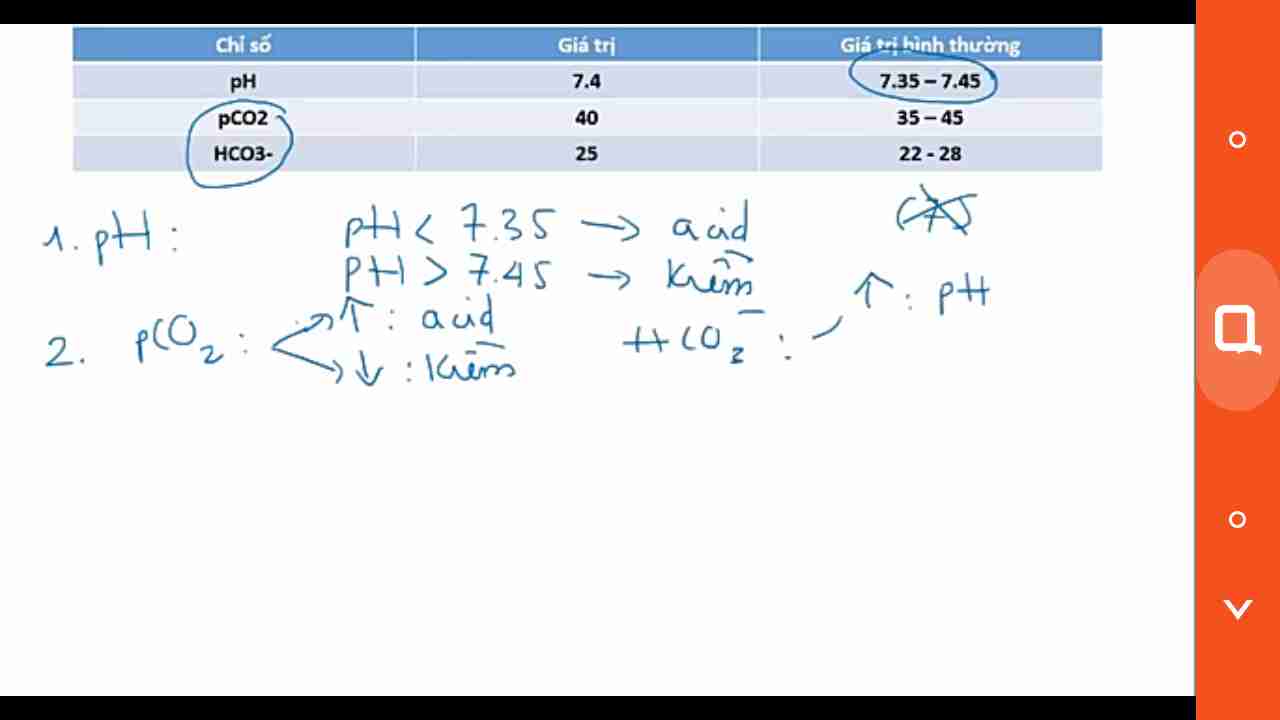 Chỉ số Giá trị Giá trị bình thường
pH 7.4 7.35 – 7.45
pCO2 40 35 – 45
HCO3- 25 22 - 28
1. pH : pH < 7.35 → acid (7)
pH > 7.45 → Kiềm
2. pCO₂ : ↑ : acid HCO₃⁻ : ↑ : pH
↓ : Kiềm